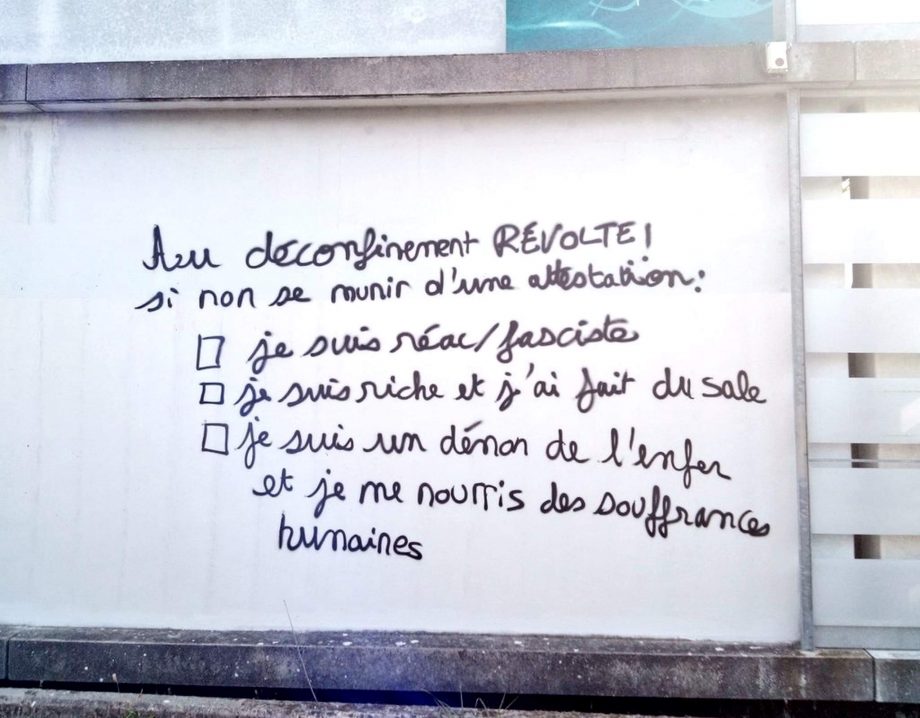 Au déconfinement RÉVOLTE!
si non se munir d'une attestation:
□ je suis réac/fasciste
□ je suis riche et j'ai fait du sale
□ je suis un démon de l'enfer
et je me nourris des souffrances
humaines